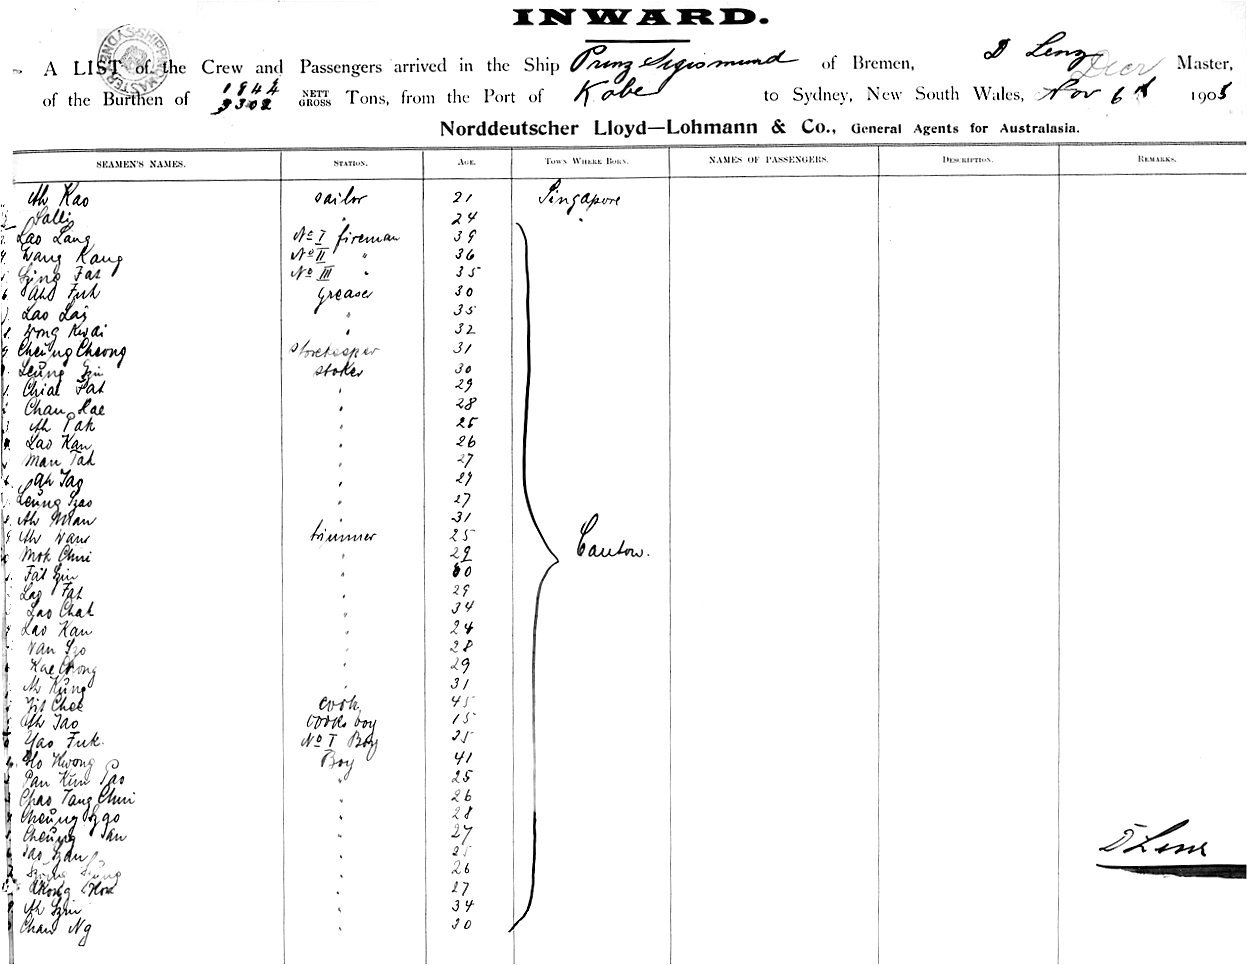 INWARD.
A LIST of the Crew and Passengers arrived in the Ship Prinz Sigismund of Bremen, D Lenz Master,
of the Burthen of 1844 NETT 3302 GROSS Tons, from the Port of Kobe to Sydney, New South Wales, Nov 6th 1905
Norddeutscher Lloyd—Lohmann & Co., General Agents for Australasia.
SEAMEN'S NAMES. STATION. AGE. TOWN WHERE BORN. NAMES OF PASSENGERS. DESCRIPTION. REMARKS.
Ah Kao sailor 21 Singapore
Salli " 24 "
Lao Lang No I fireman 39
Wang Kang No II " 36
Fat No III " 35
Ah Fuk greaser 30
Lao Laj " 35
Wong Kwai " 32
Cheung Cheong storekeeper 31
Leung stoker 30
Chiae Fat " 29
Chan Kae " 28
Ah Pak " 25
Lao Kan " 26
Man Tak " 27
Ah Tao " 29
Leung " 27
Ah Man " 31
Ah Wan trimmer 25
Mok Chui " 29 Canton.
Fat " 30
Lao Fat " 29
Lao Chat " 34
Lao Kan " 24
Van " 28
Kae Chong " 29
Ah Kung " 31
Yit Chee cook 45
Ah Tao cooks boy 15
Yao Fuk. No I Boy 25
Ho Kwong Boy 41
Pan Kum Tao " 25
Chao Tang Chui " 26
Cheung " 28
Cheung " 27
D Lenz
" 25
" 26
" 27
Ah " 34
Chan Ng " 30